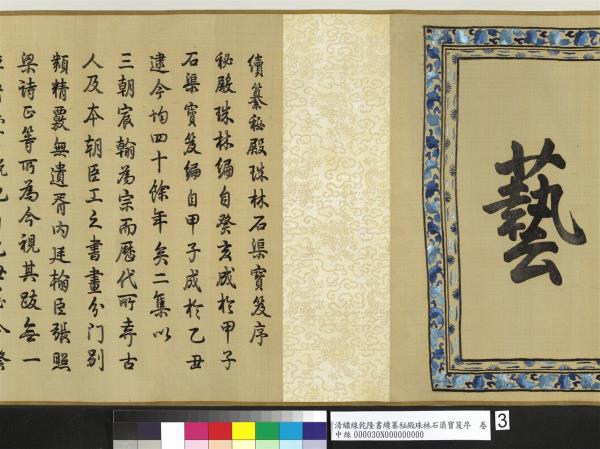 藝
續纂秘殿珠林石渠寶笈序
秘殿珠林編自癸亥成於甲子
石渠寶笈編自甲子成於乙丑
逮今均四十餘年矣二集以
三朝宸翰為宗而歷代所弆古
人及本朝臣工之書畫分門別
類精覈無遺胥內廷翰臣張照
梁詩正等所為今視其跋無一
清繡線乾隆書續纂秘殿珠林石渠寶笈序 卷
中絲000030N000000000
3